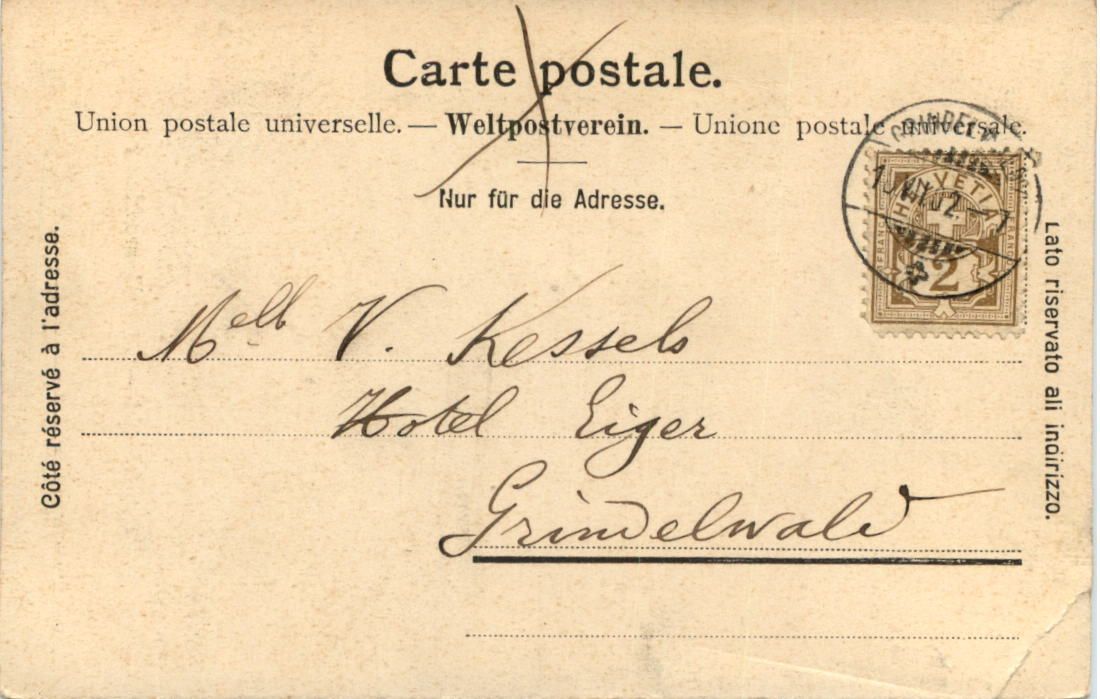 Carte postale.
Union postale universelle. — Weltpostverein. — Unione postale universale.
Nur für die Adresse.
Côté réservé à l'adresse.
Lato riservato all indirizzo.
HELVETIA
FRANCO
FRANCO
2
Melle V. Kessels
Hotel Eiger
Grindelwald